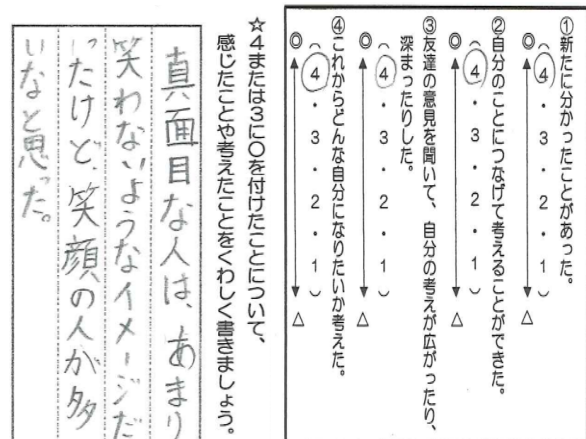 ①新たに分かったことがあった。
◎（4・3・2・1）△
②自分のことにつなげて考えることができた。
◎（4・3・2・1）△
③友達の意見を聞いて、自分の考えが広がったり、
深まったりした。
◎（4・3・2・1）△
④これからどんな自分になりたいか考えた。
◎（4・3・2・1）△
☆4または3に○を付けたことについて、
感じたことや考えたことをくわしく書きましょう。
真面目な人は、あまり
笑わないようなイメージだ
ったけど、笑顔の人が多
いなと思った。